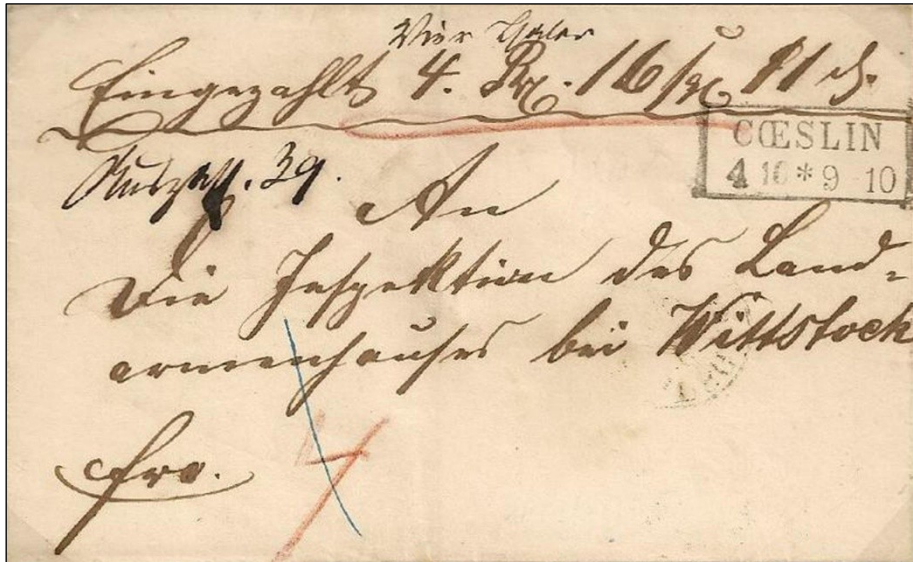 Vier Thaler
Eingezahlt 4. Rℓ. 16 Sgr 11 d.
CŒSLIN
4 10 * 9 10
Auszah. 39.
An
Die Inspektion des Land-
armenhauses bei Wittstock
fro.
4